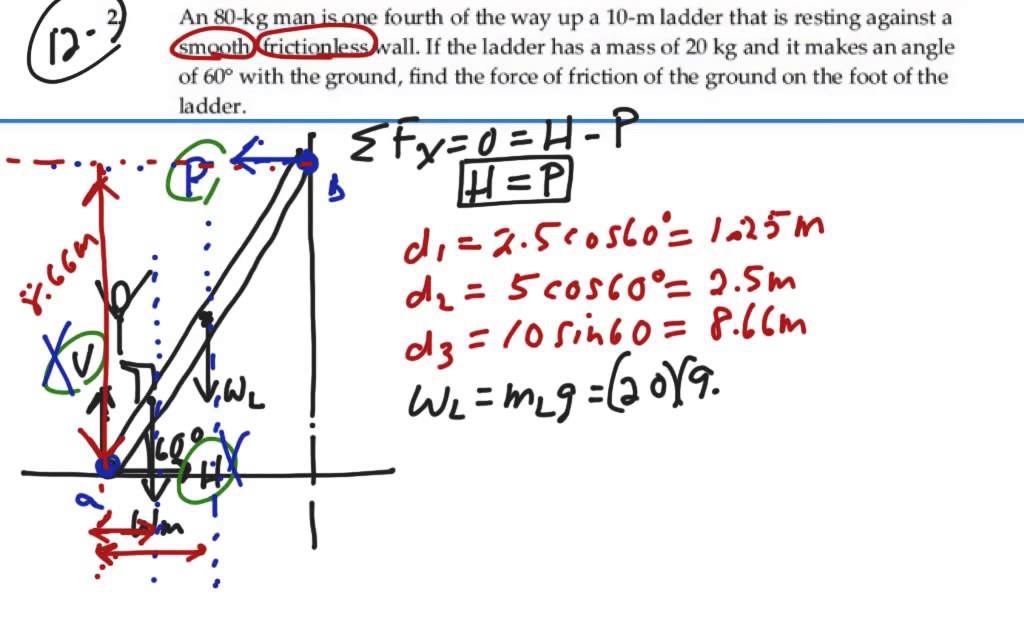 12-2
2. An 80-kg man is one fourth of the way up a 10-m ladder that is resting against a
smooth frictionless wall. If the ladder has a mass of 20 kg and it makes an angle
of 60° with the ground, find the force of friction of the ground on the foot of the
ladder.
ΣFx = 0 = H - P
H = P
P
b
d1 = 2.5cos60° = 1.25m
8.66m
d2 = 5cos60° = 2.5m
d3 = 10sin60 = 8.66m
V
WL
WL = mLg = (20)(9.
60°
H
a